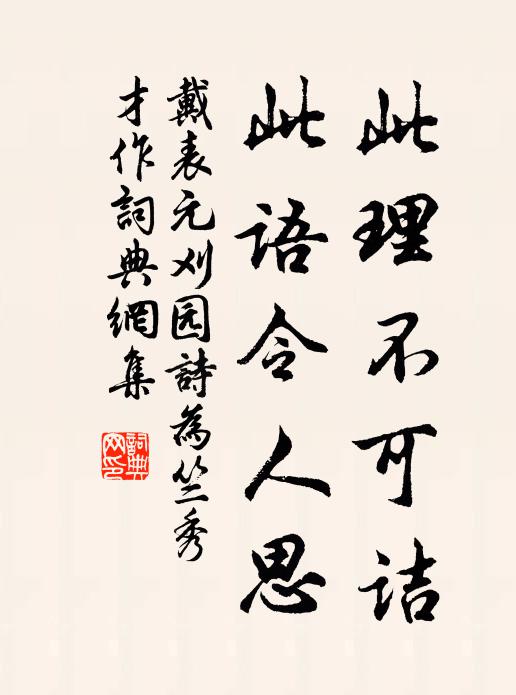 此理不可诘
此语令人思
戴表元刈园詩為竺秀
才作詞典網集
詞典
网印